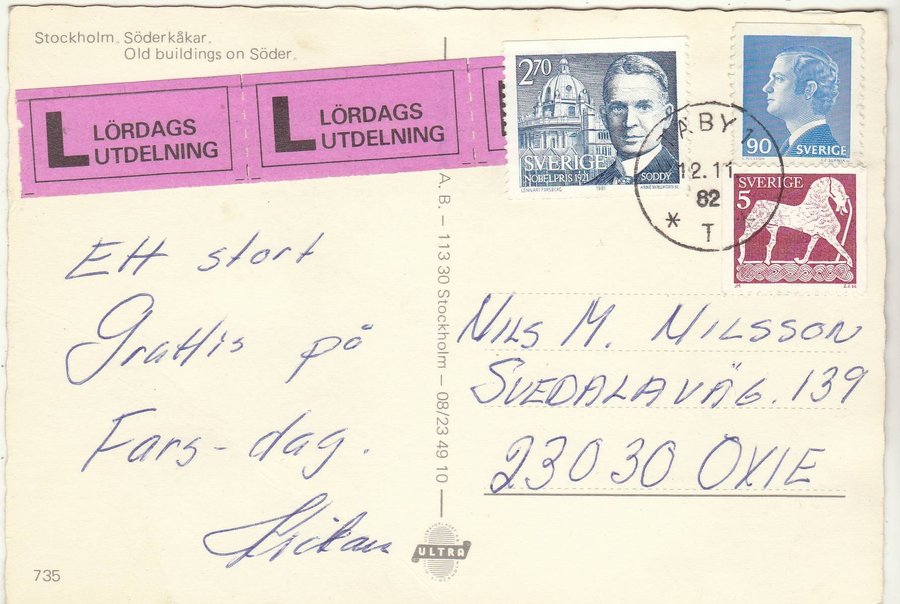 Stockholm. Söderkåkar.
Old buildings on Söder.
L LÖRDAGS
UTDELNING
L LÖRDAGS
UTDELNING
2.70
SVERIGE
NOBELPRIS 1921
SODDY
LENNART FORSBERG 1981 ARNE WALLHORN SC
90 SVERIGE
SVERIGE
5
ÄBY 1
12.11
82
* T
Ett stort
Grattis på
Fars-dag.
A. B. – 113 30 Stockholm – 08/23 49 10
NILS M. NILSSON
SVEDALAVÄG. 139
23030 OXIE
ULTRA
735